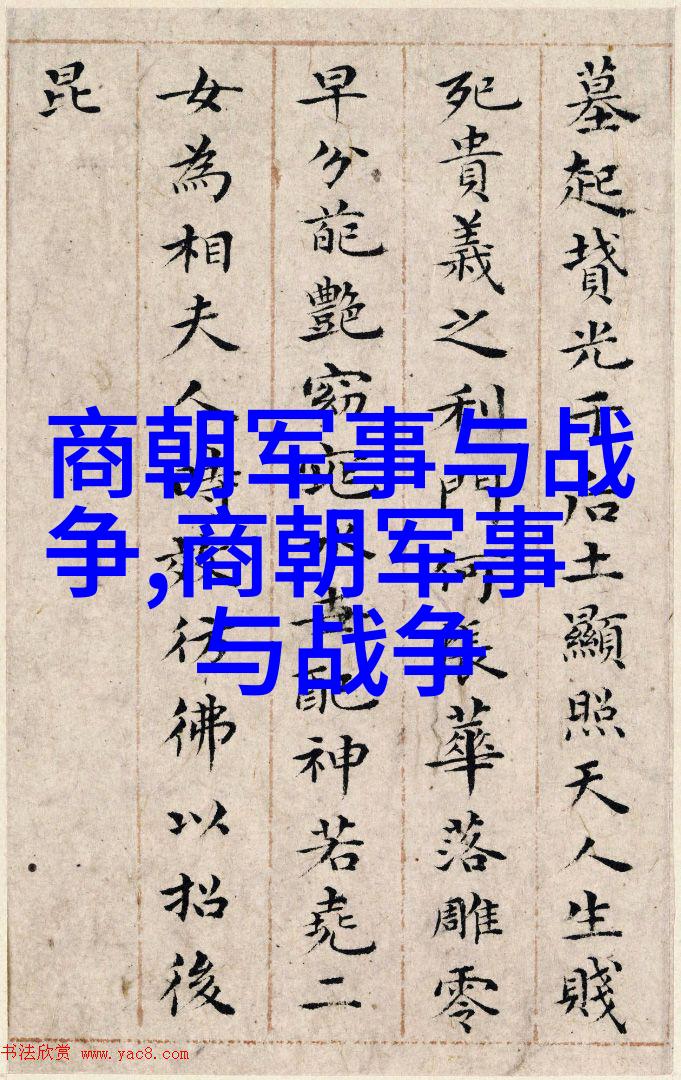 墓起光于后土顯照天人生賤
死貴義之利門何長華落雕零
早分葩艷窈窕配神若堯二
女為相夫人時彷彿以招後
昆
商朝军事与战
争,商朝军事
与战争
书法欣赏 www.yac8.com